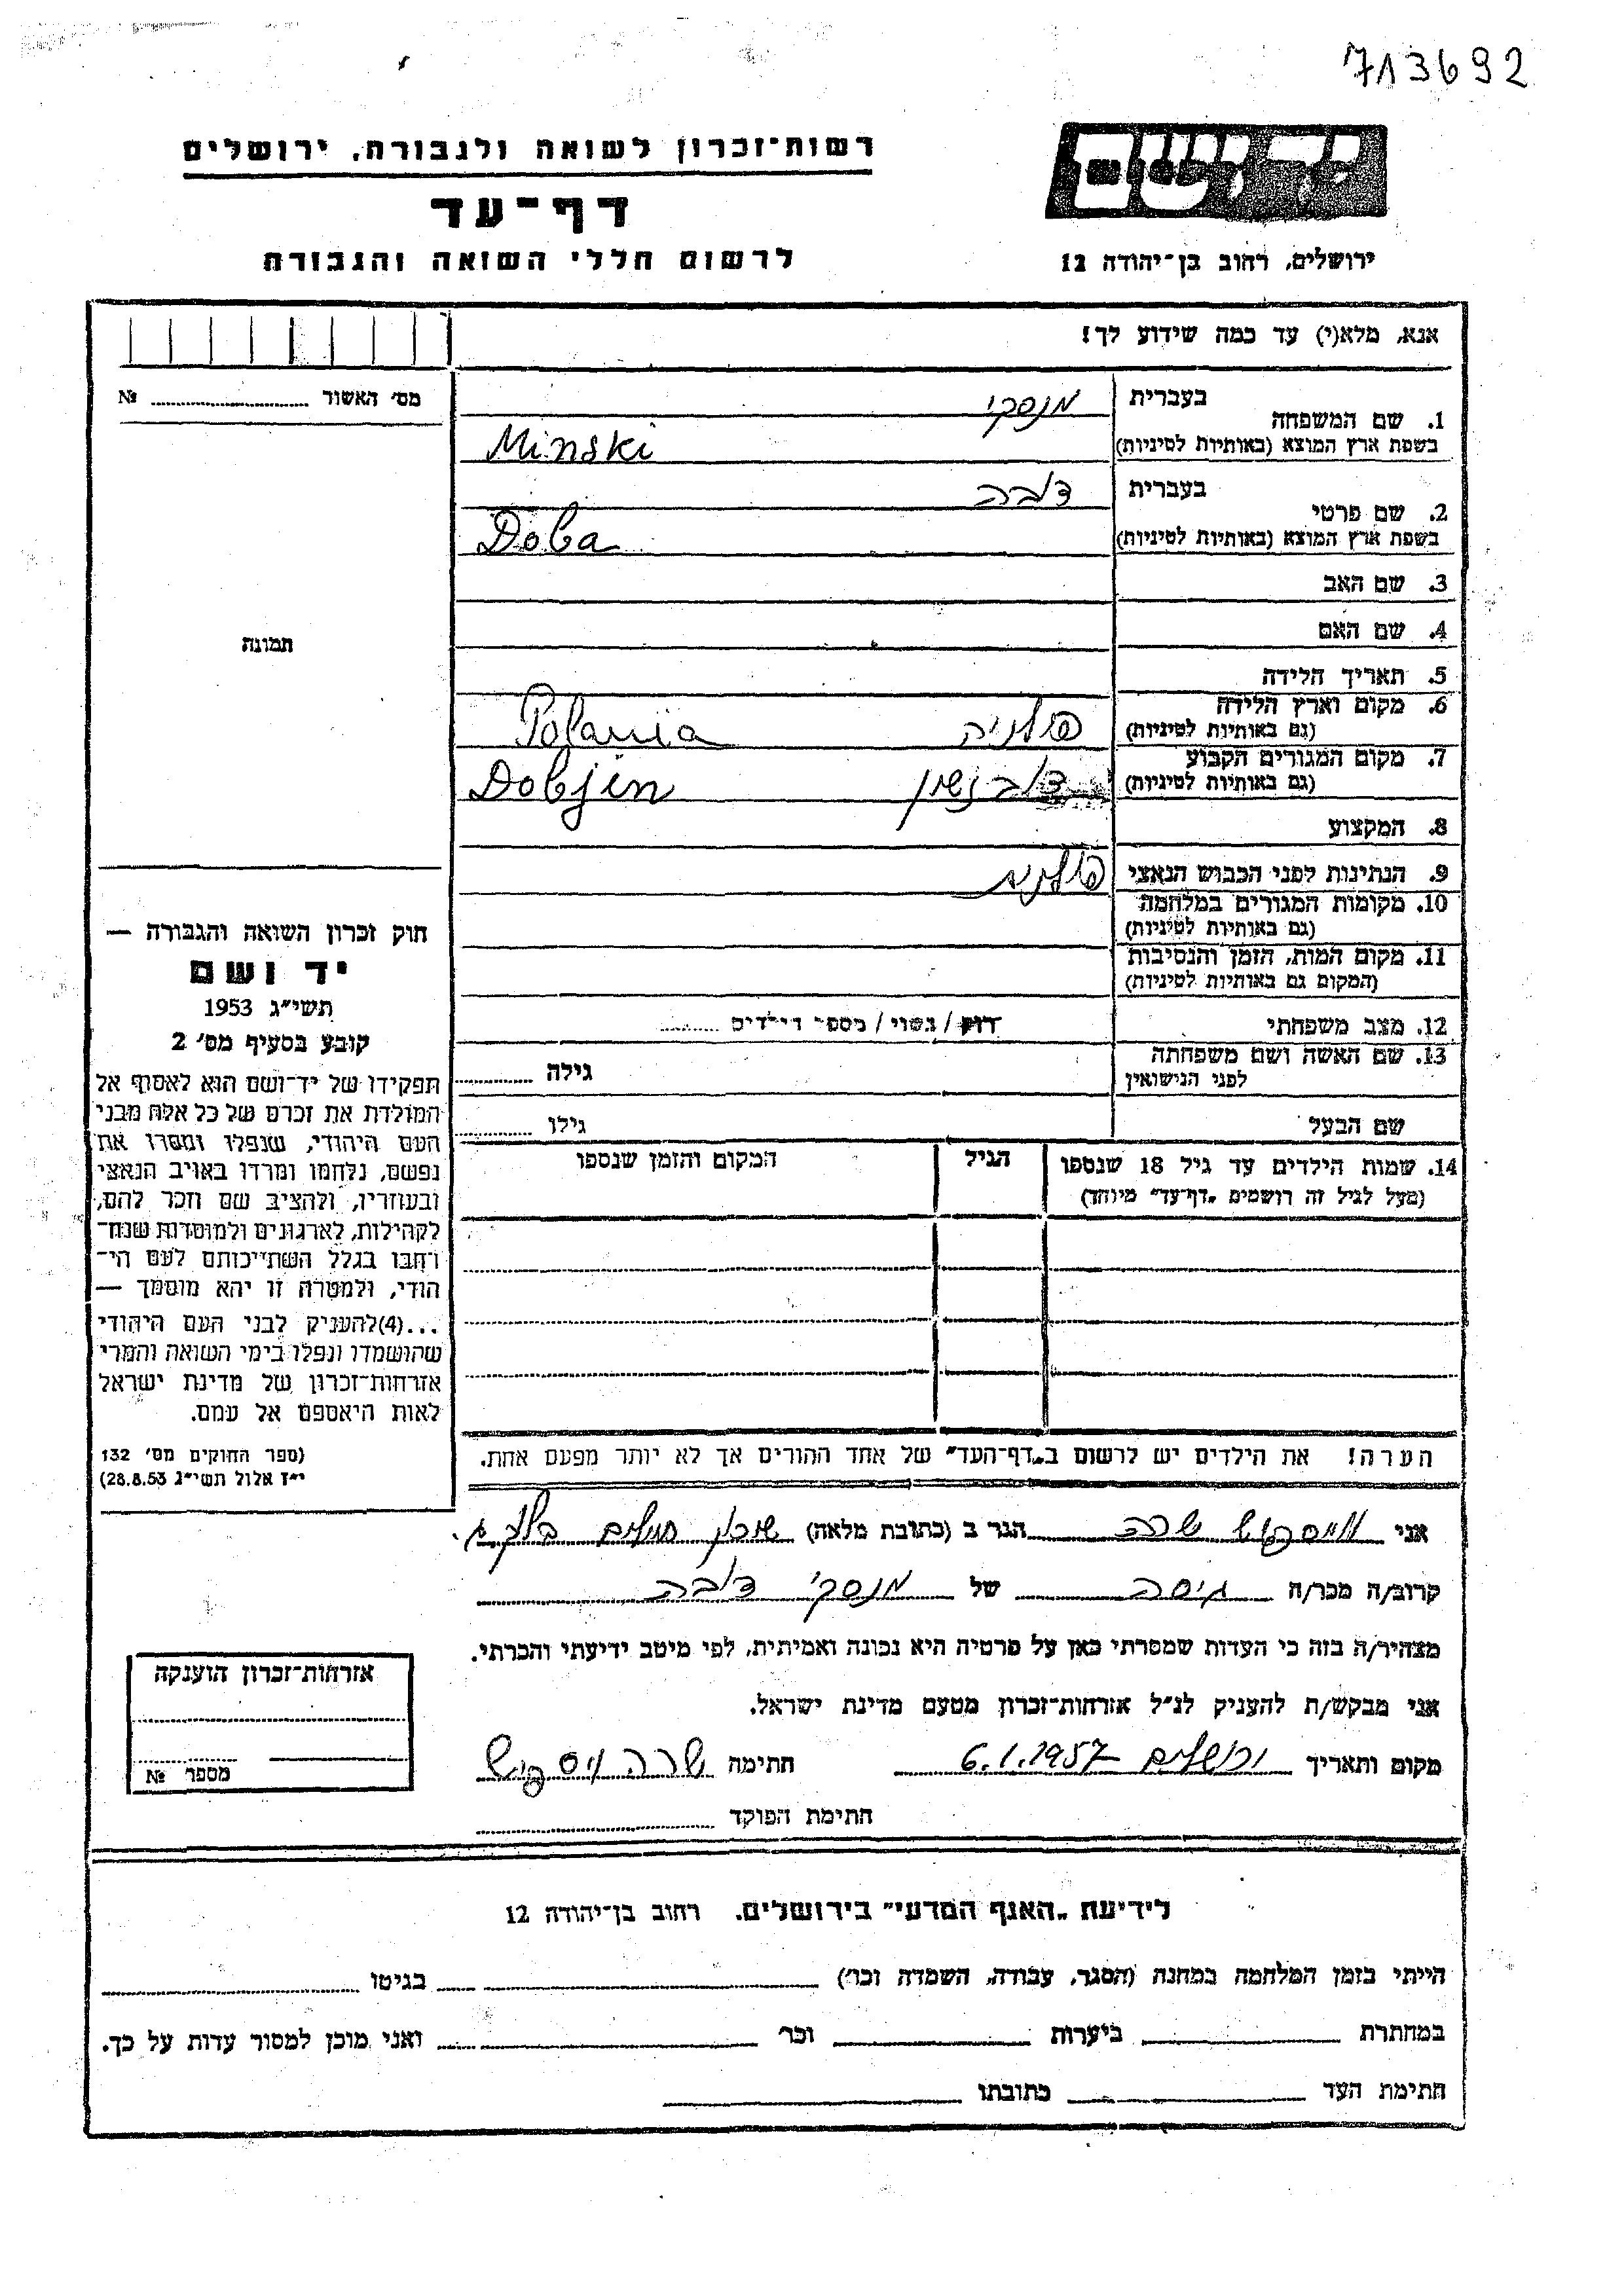 713692
יד ושם
רשות־זכרון לשואה ולגבורה, ירושלים
דף־עד
לרשום חללי השואה והגבורה
ירושלים, רחוב בן־יהודה 12
אנא, מלא(י) עד כמה שידוע לך!
מס׳ האשור № 
בעברית מנסקי
1. שם המשפחה
בשפת ארץ המוצא (באותיות לטיניות) Minski
בעברית דובה
2. שם פרטי
בשפת ארץ המוצא (באותיות לטיניות) Doba
3. שם האב
4. שם האם
5. תאריך הלידה
6. מקום וארץ הלידה
(גם באותיות לטיניות) פולניה Polania
7. מקום המגורים הקבוע
(גם באותיות לטיניות) Dobjin
8. המקצוע
9. הנתינות לפני הכבוש הנאצי
10. מקומות המגורים במלחמה
(גם באותיות לטיניות)
11. מקום המות, הזמן והנסיבות
(המקום גם באותיות לטיניות)
12. מצב משפחתי רוק / נשוי / מספר הילדים
13. שם האשה ושם משפחתה
לפני הנישואין גילה
שם הבעל גילו
14. שמות הילדים עד גיל 18 שנספו הגיל המקום והזמן שנספו
(מעל לגיל זה רושמים „דף־עד״ מיוחד)
הערה! את הילדים יש לרשום ב„דף־העד״ של אחד ההורים אך לא יותר מפעם אחת.
תמונה
חוק זכרון השואה והגבורה —
יד ושם
תשי״ג 1953
קובע בסעיף מס׳ 2
תפקידו של יד־ושם הוא לאסוף אל
המולדת את זכרם של כל אלה מבני
העם היהודי, שנפלו ומסרו את
נפשם, נלחמו ומרדו באויב הנאצי
ובעוזריו, ולהציב שם וזכר להם,
לקהילות, לארגונים ולמוסדות שנח־
רבו בגלל השתייכותם לעם הי־
הודי, ולמטרה זו יהא מוסמך —
...(4)להעניק לבני העם היהודי
שהושמדו ונפלו בימי השואה והמרי
אזרחות־זכרון של מדינת ישראל
לאות היאספם אל עמם.
(ספר החוקים מס׳ 132
י״ז אלול תשי״ג 28.8.53)
אני שרה הגר ב (כתובת מלאה) שיכון
קרוב/ה מכר/ה גיסה של מנסקי דובה
מצהיר/ה בזה כי העדות שמסרתי כאן על פרטיה היא נכונה ואמיתית, לפי מיטב ידיעתי והכרתי.
אני מבקש/ת להעניק לנ״ל אזרחות־זכרון מטעם מדינת ישראל.
מקום ותאריך ירושלים 6.1.1957 חתימה שרה
חתימת הפוקד
אזרחות־זכרון הוענקה
מספר №
לידיעת „האגף המדעי״ בירושלים, רחוב בן־יהודה 12
הייתי בזמן המלחמה במחנה (הסגר, עבודה, השמדה וכו׳) בגיטו
במחתרת ביערות וכו׳ ואני מוכן למסור עדות על כך.
חתימת העד כתובתו